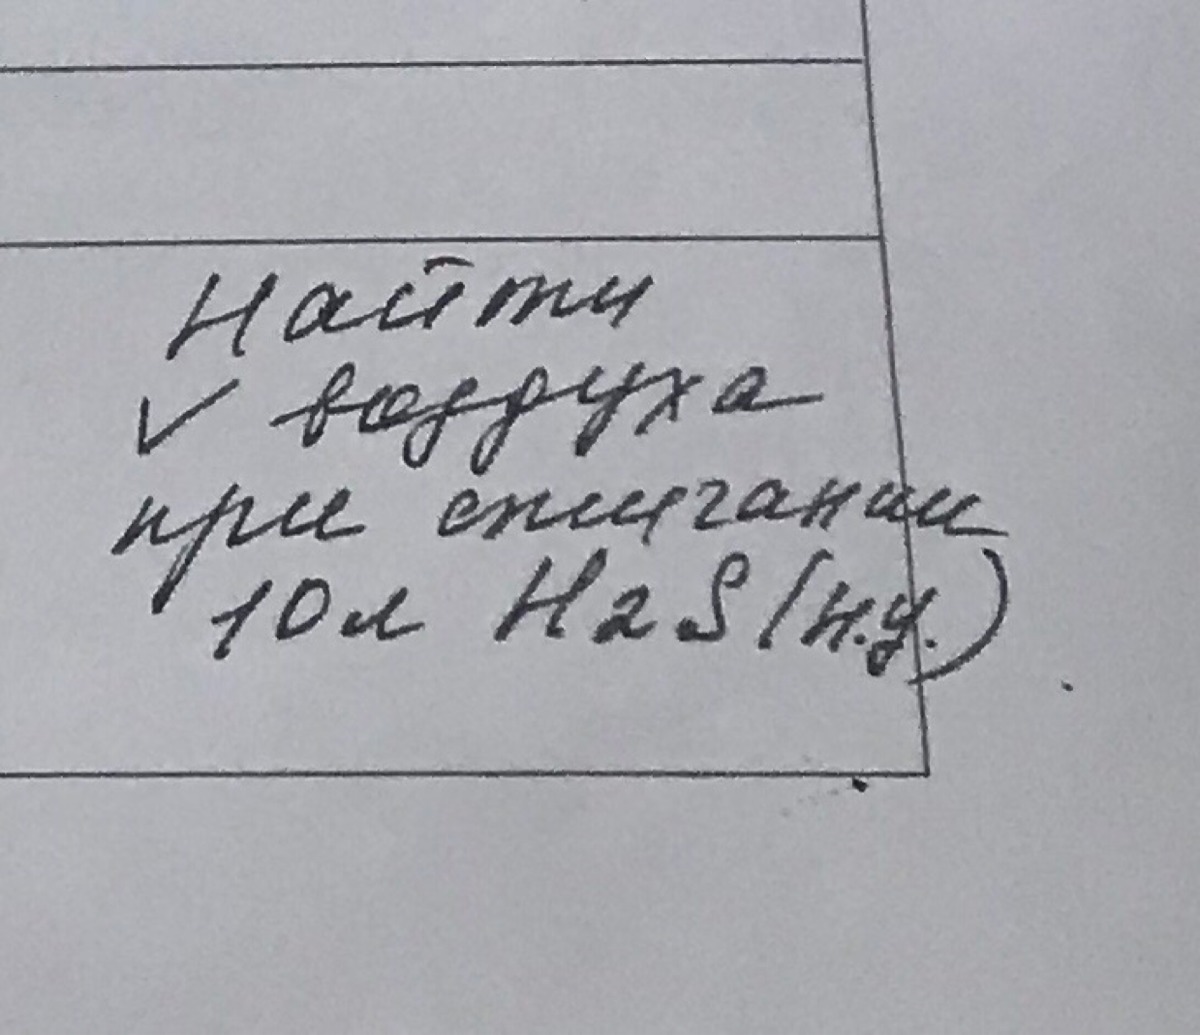 Найти
V воздуха
при сжигании
10л H2S (н.у.)